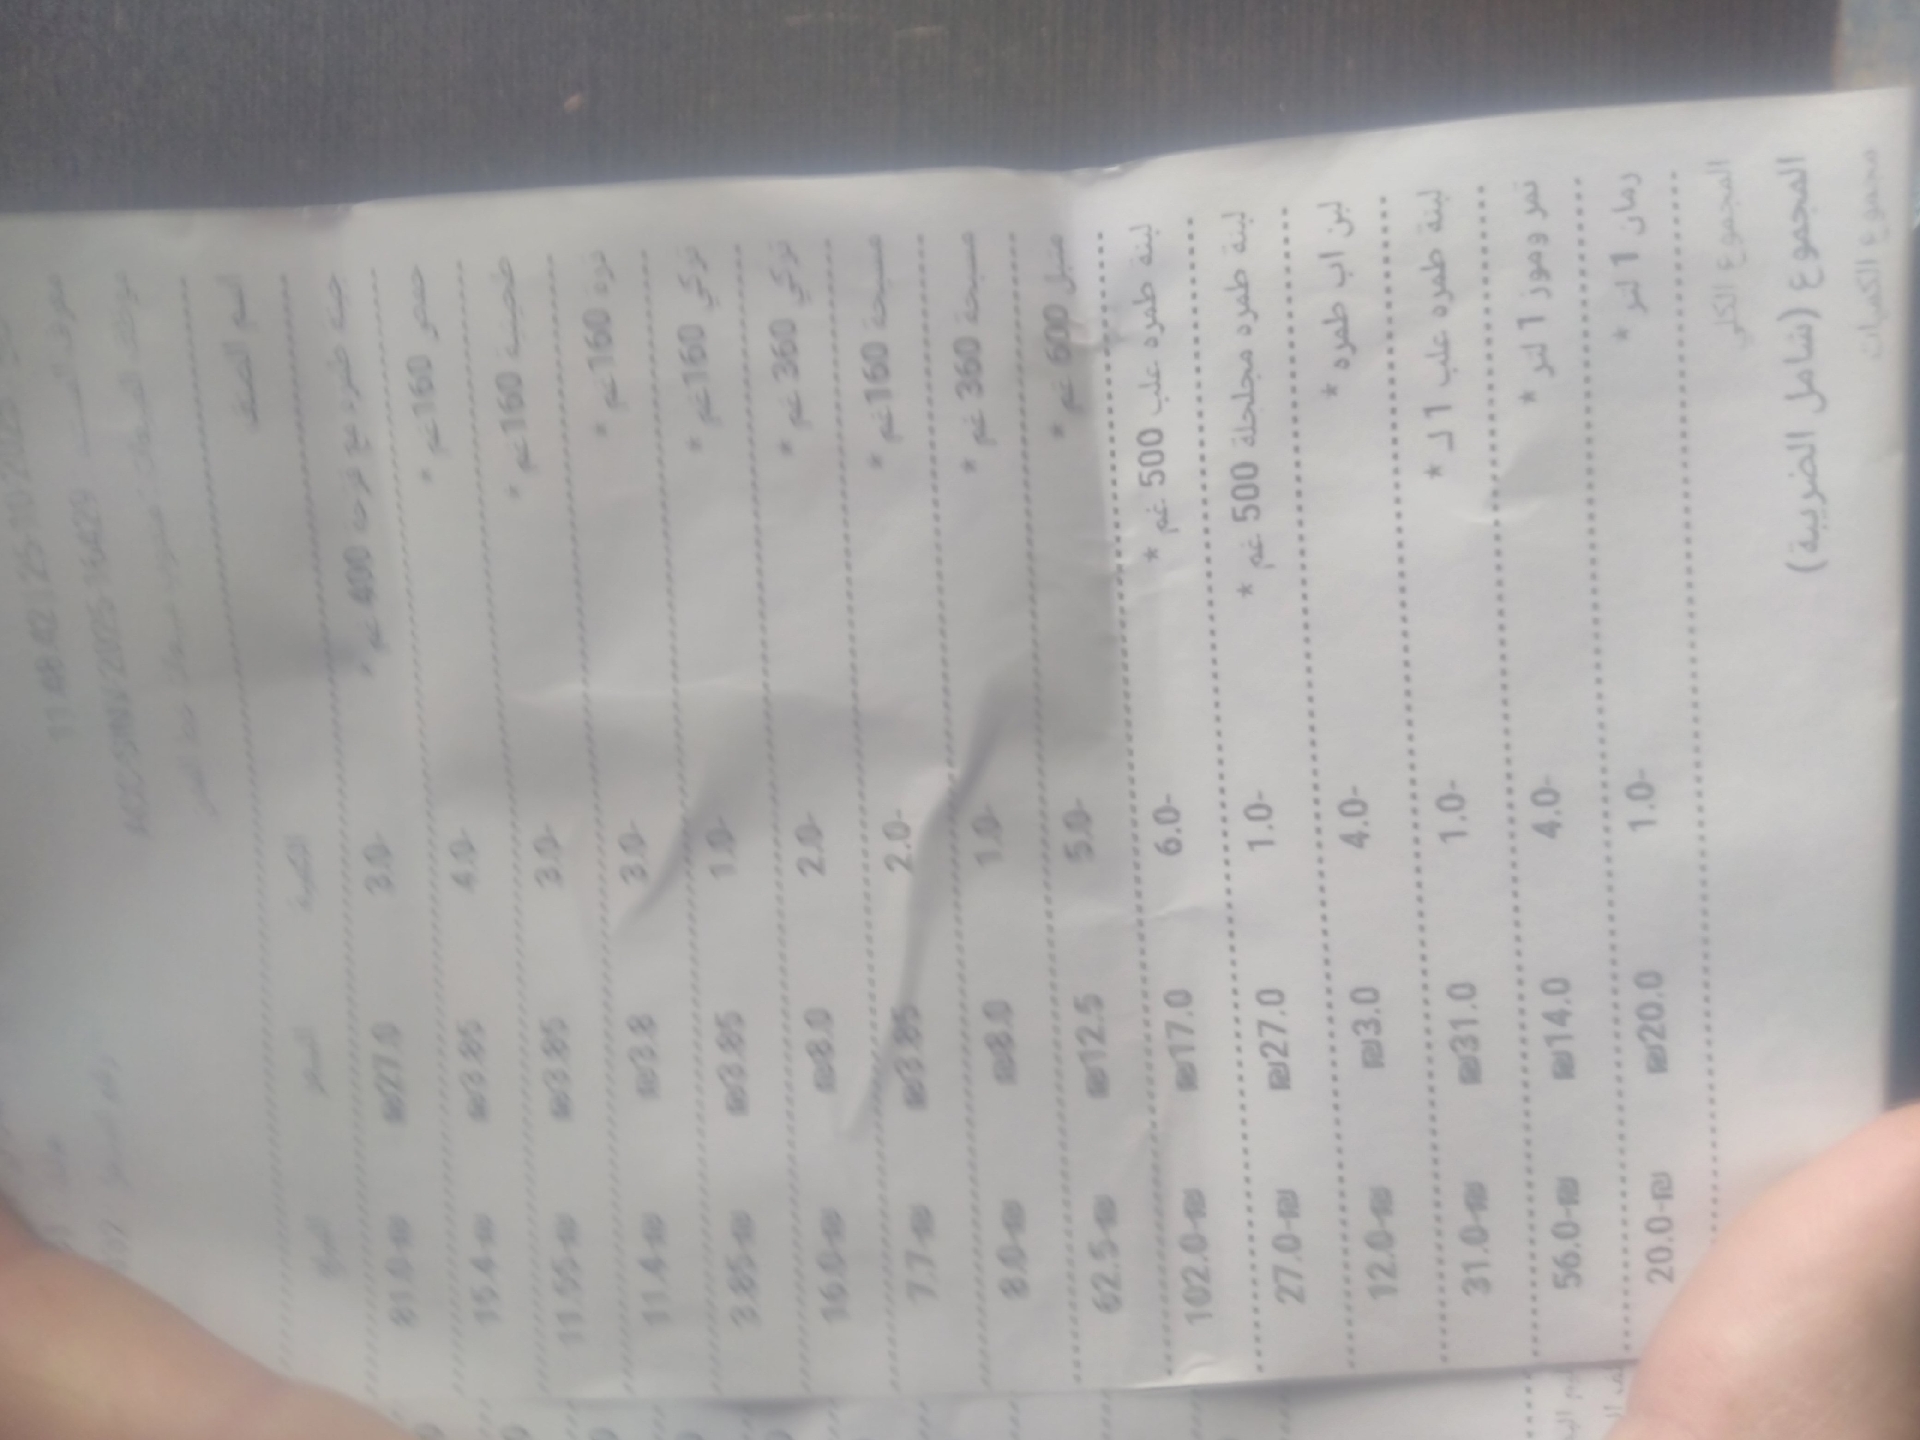 11:48:42 | 25-10-2025
ACC-SINV-2025-16429
اسم الصنف الكمية السعر المبلغ
400 غم * 3.0- ₪27.0 81.0-₪
حمص 160غم * 4.0- ₪3.85 15.4-₪
طحينة 160غم * 3.0- ₪3.85 11.55-₪
ذرة 160غم * 3.0- ₪3.8 11.4-₪
تركي 160غم * 1.0- ₪3.85 3.85-₪
تركي 360 غم * 2.0- ₪8.0 16.0-₪
مسبحة 160غم * 2.0- ₪3.85 7.7-₪
مسبحة 360 غم * 1.0- ₪8.0 8.0-₪
متبل 600 غم * 5.0- ₪12.5 62.5-₪
لبنة طمره علب 500 غم * 6.0- ₪17.0 102.0-₪
لبنة طمره مجلجلة 500 غم * 1.0- ₪27.0 27.0-₪
لبن اب طمره * 4.0- ₪3.0 12.0-₪
لبنة طمره علب 1 لـ * 1.0- ₪31.0 31.0-₪
تمر وموز 1 لتر * 4.0- ₪14.0 56.0-₪
رمان 1 لتر * 1.0- ₪20.0 20.0-₪
المجموع الكلي
المجموع (شامل الضريبة)
مجموع الكميات